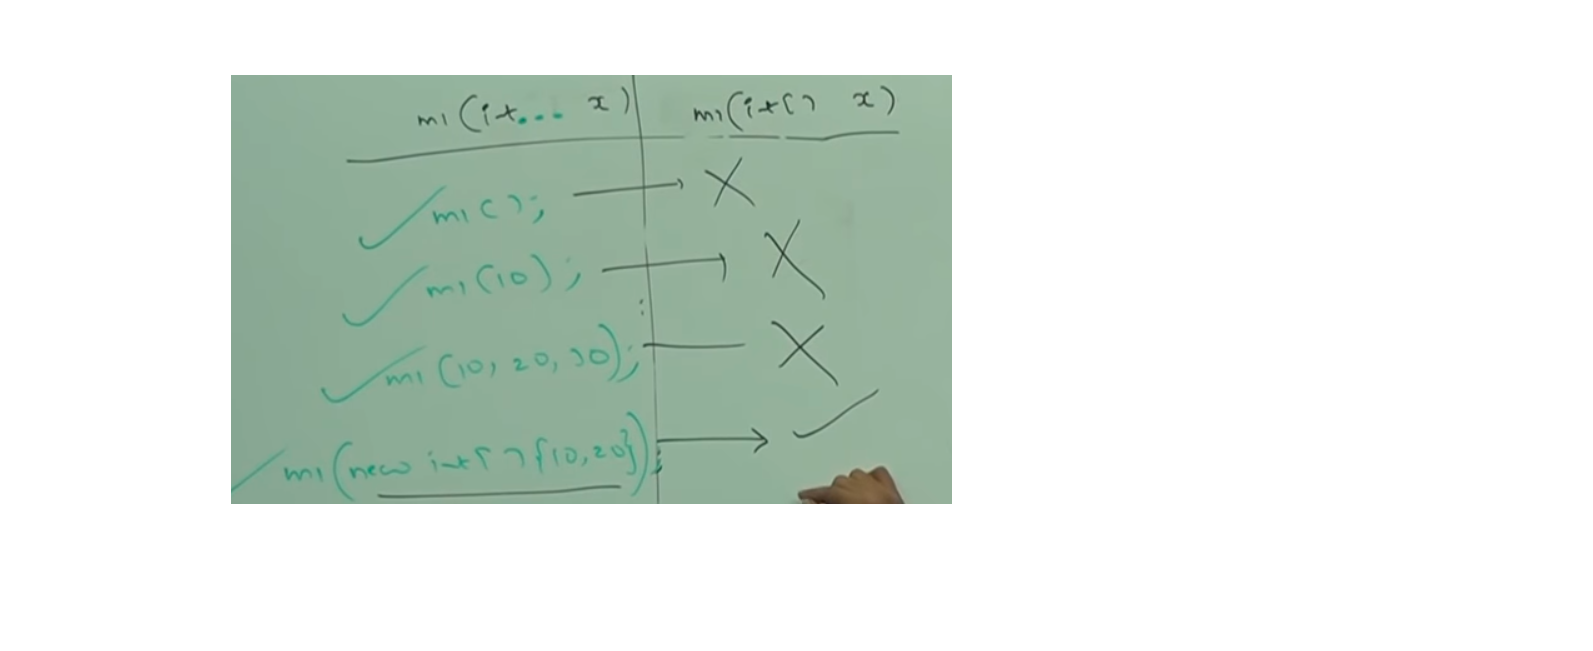 m1(int... x) m1(int[] x)
m1();
m1(10);
m1(10, 20, 30);
m1(new int[]{10,20});